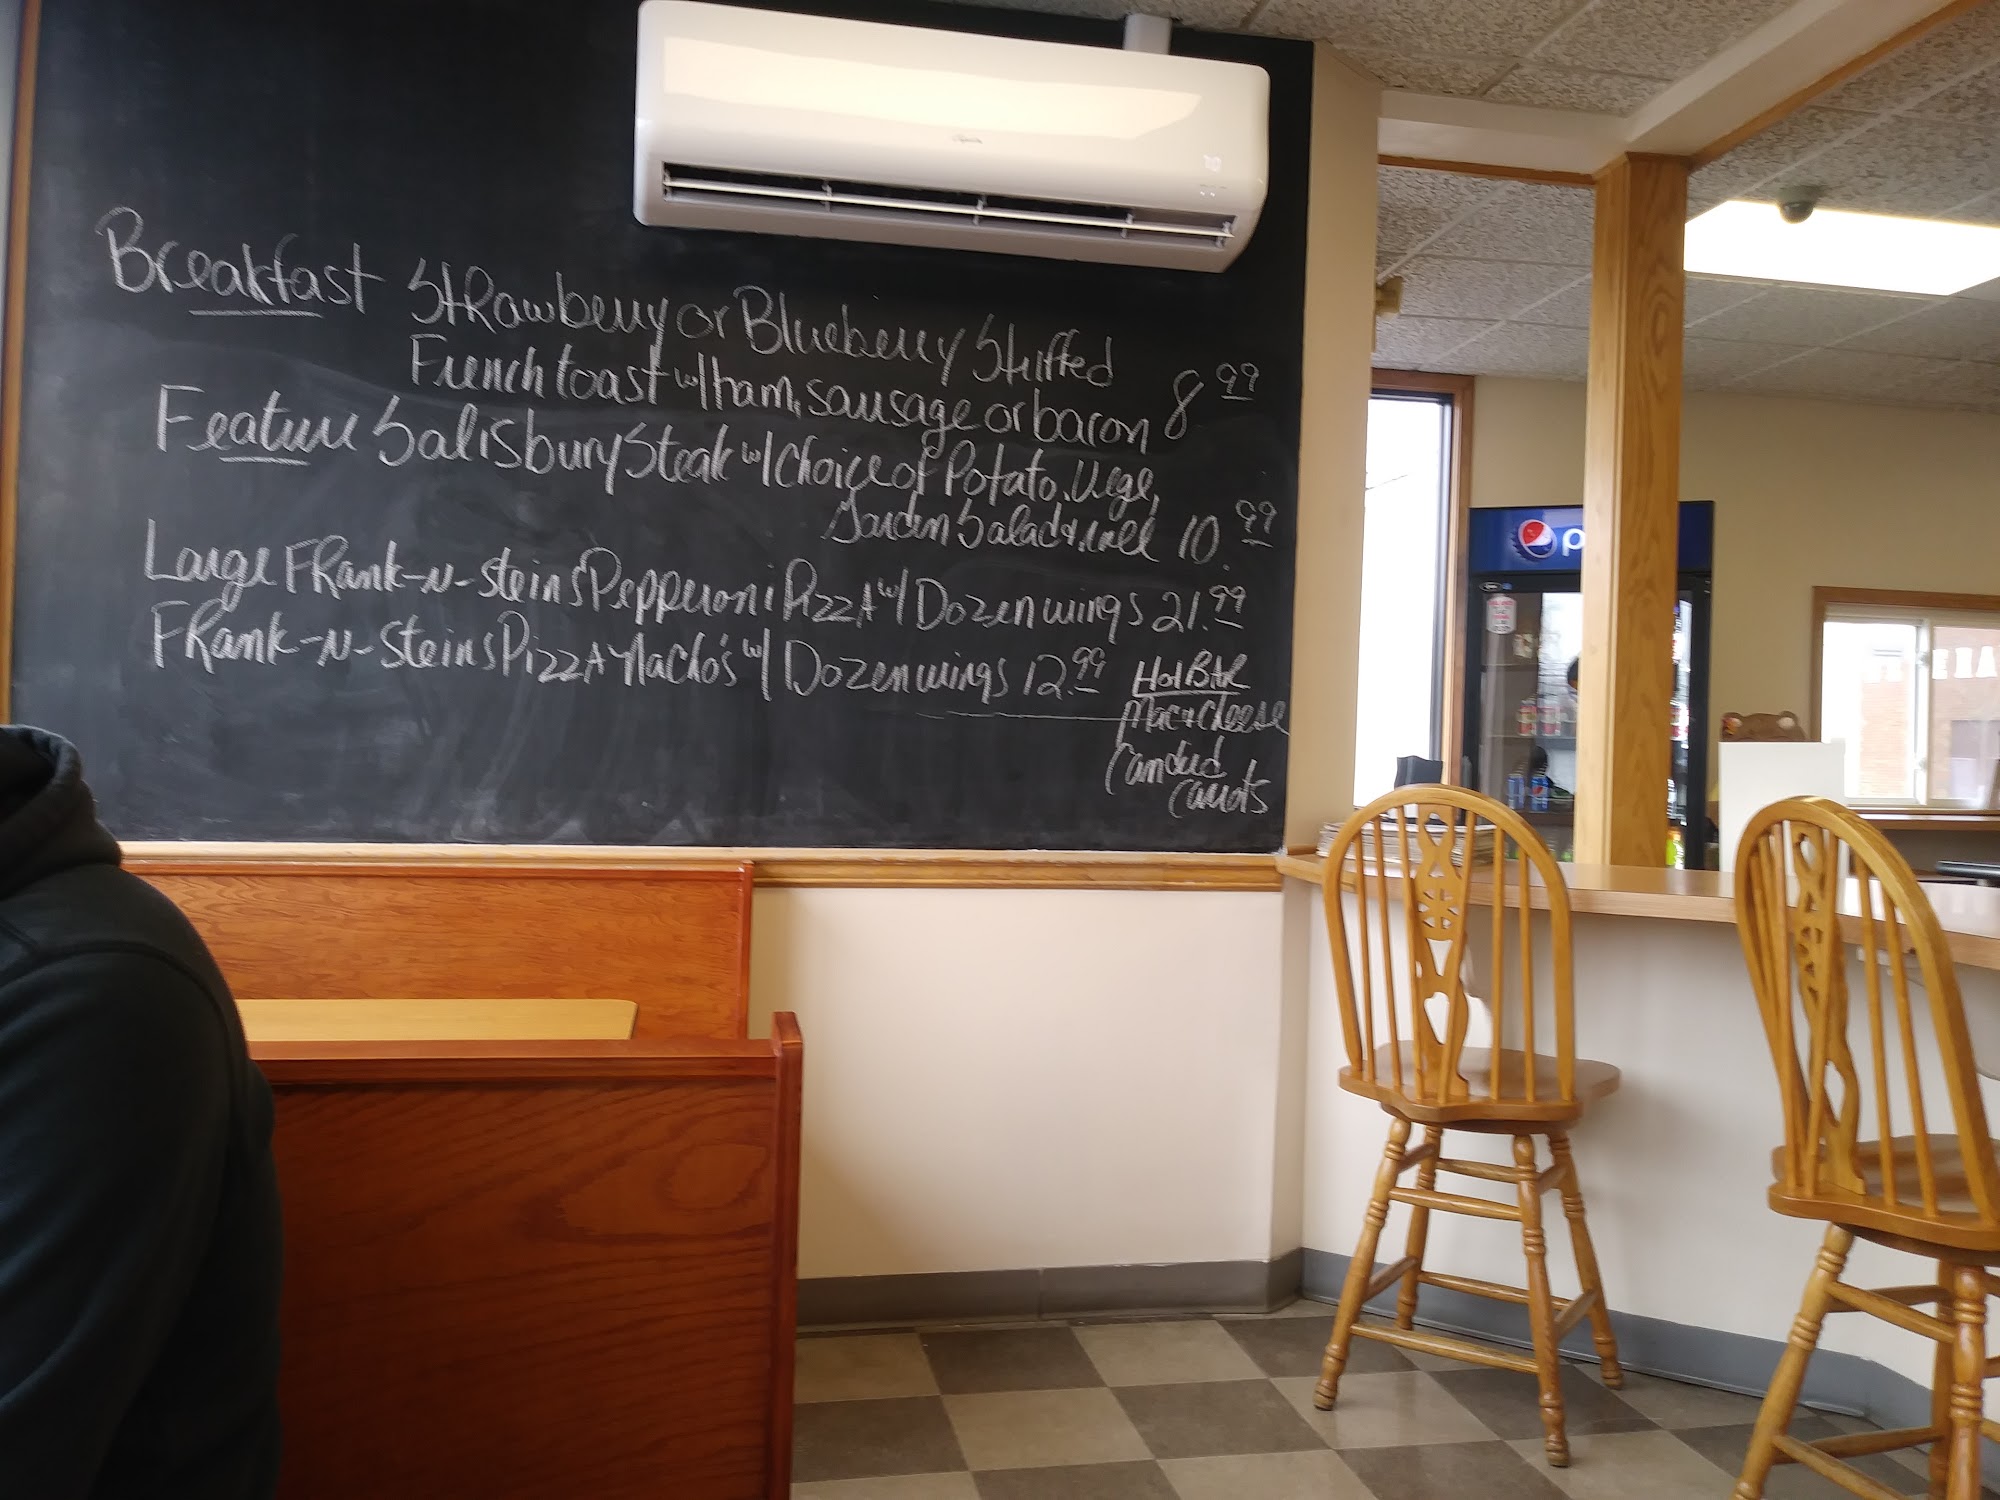 Breakfast Strawberry or Blueberry Stuffed
French toast w/ ham, sausage or bacon 8 99
Feature Salisbury Steak w/ Choice of Potato, Vege,
Garden Salad & roll 10.99
Large Frank-N-Steins Pepperoni Pizza w/ Dozen wings 21.99
Frank-N-Steins Pizza Nacho's w/ Dozen wings 12.99
Hot Bar
Mac & Cheese
Candied
Carrots